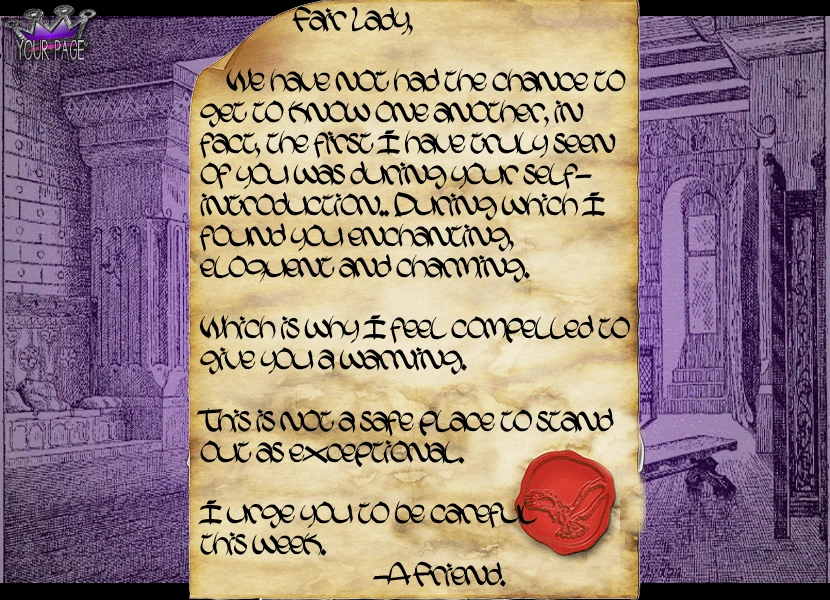 YOUR PAGE
Fair Lady,
We have not had the chance to
get to know one another, in
fact, the first I have truly seen
of you was during your self-
introduction.. During which I
found you enchanting,
eloquent and charming.
Which is why I feel compelled to
give you a warning.
This is not a safe place to stand
out as exceptional.
I urge you to be careful
this week.
-A friend.